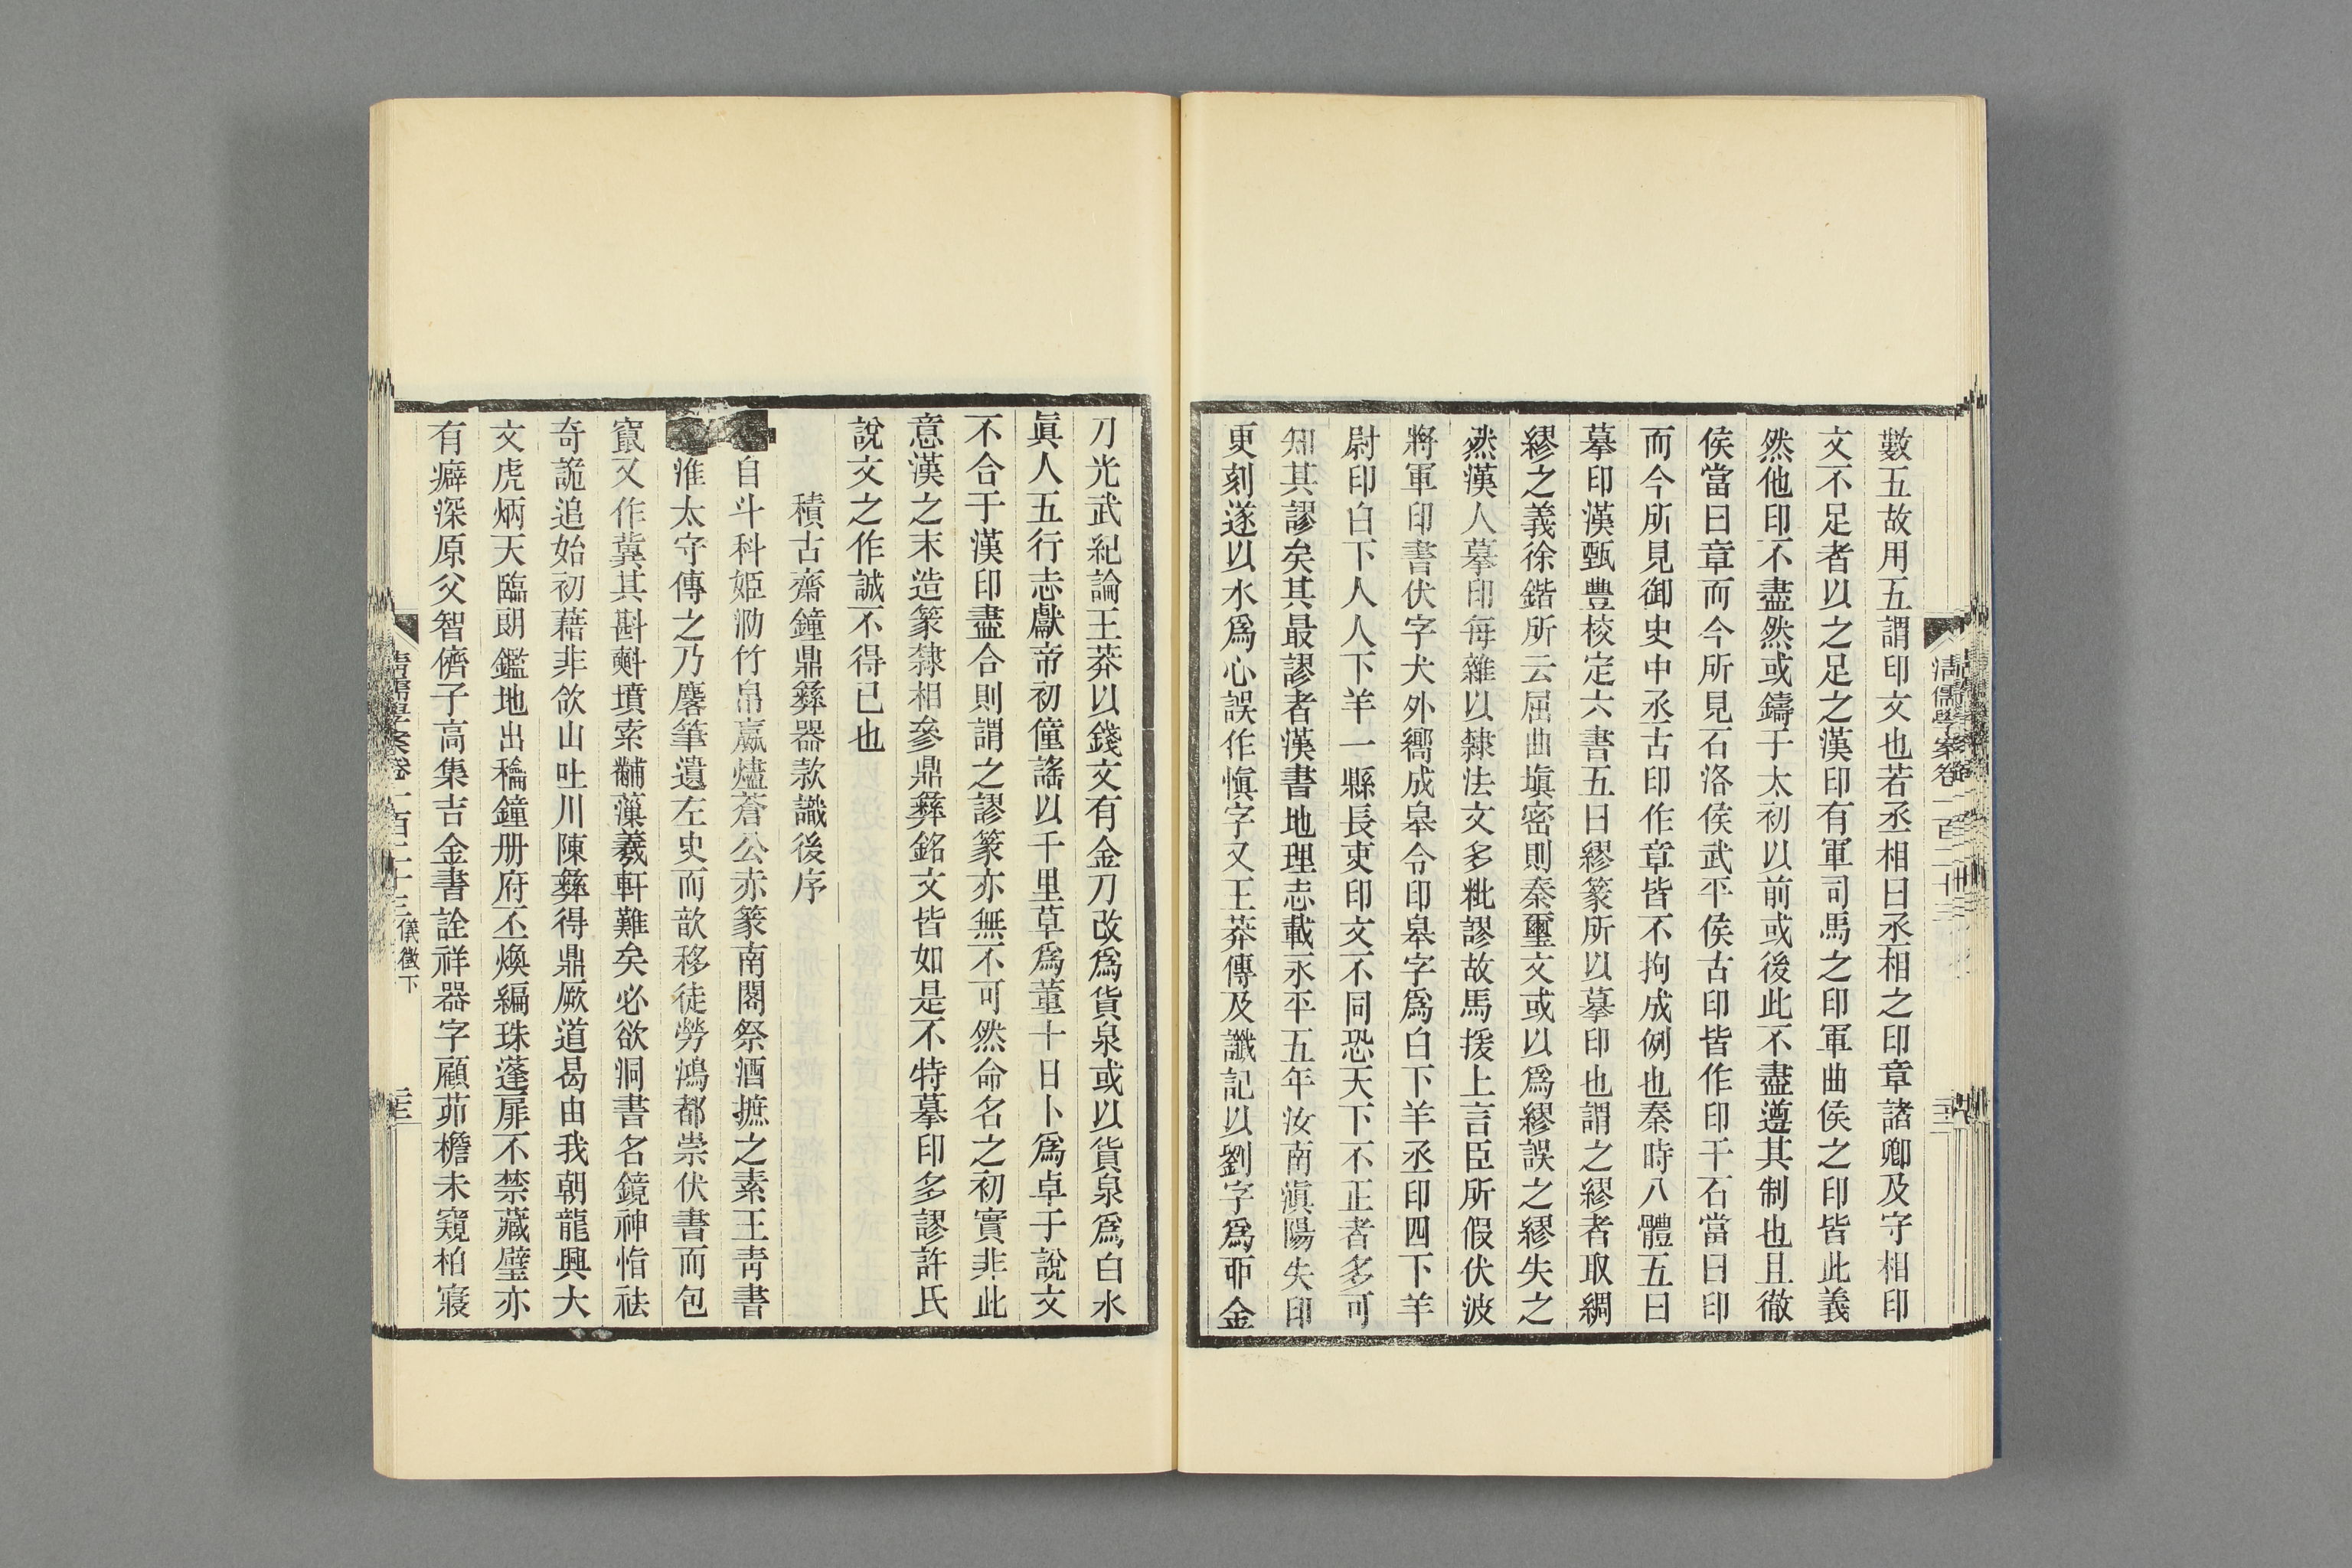 數五故用五謂印文也若丞相曰丞相之印章諸卿及守相印
文不足者以之足之漢印有軍司馬之印軍曲侯之印皆此義
然他印不盡然或鑄于太初以前或後此不盡遵其制也且徹
侯當曰章而今所見石洛侯武平侯古印皆作印干石當曰印
而今所見御史中丞古印作章皆不拘成例也秦時八體五曰
摹印漢甄豐校定六書五曰繆篆所以摹印也謂之繆者取綢
繆之義徐鍇所云屈曲塡密則秦璽文或以爲繆誤之繆失之
然漢人摹印每雜以隸法文多粃謬故馬援上言臣所假伏波
將軍印書伏字犬外嚮成皋令印皋字爲白下羊丞印四下羊
尉印白下人人下羊一縣長吏印文不同恐天下不正者多可
知其謬矣其最謬者漢書地理志載永平五年汝南滇陽失印
更刻遂以水爲心誤作愼字又王莽傳及讖記以劉字爲丣金
刀光武紀論王莽以錢文有金刀改爲貨泉或以貨泉爲白水
眞人五行志獻帝初僮謠以千里草爲董十日卜爲卓于說文
不合于漢印盡合則謂之謬篆亦無不可然命名之初實非此
意漢之末造篆隸相參鼎彝銘文皆如是不特摹印多謬許氏
說文之作誠不得已也
積古齋鐘鼎彝器款識後序
自斗科姬泐竹帛嬴燼蒼公赤篆南閣祭酒摭之素王靑書
淮太守傳之乃麐筆遺左史而歆移徒勞鴻都崇伏書而包
竄又作冀其斟斠墳索黼藻羲軒難矣必欲洞書名鏡神恉祛
奇詭追始初藉非欲山吐川陳彝得鼎厥道曷由我朝龍興大
文虎炳天臨朗鑑地出稐鐘册府丕煥編珠蓬扉不禁藏璧亦
有癖深原父智儕子高集吉金書詮祥器字顧茆檐未窺柏寢
清儒學案卷一百二十三
儀徵下